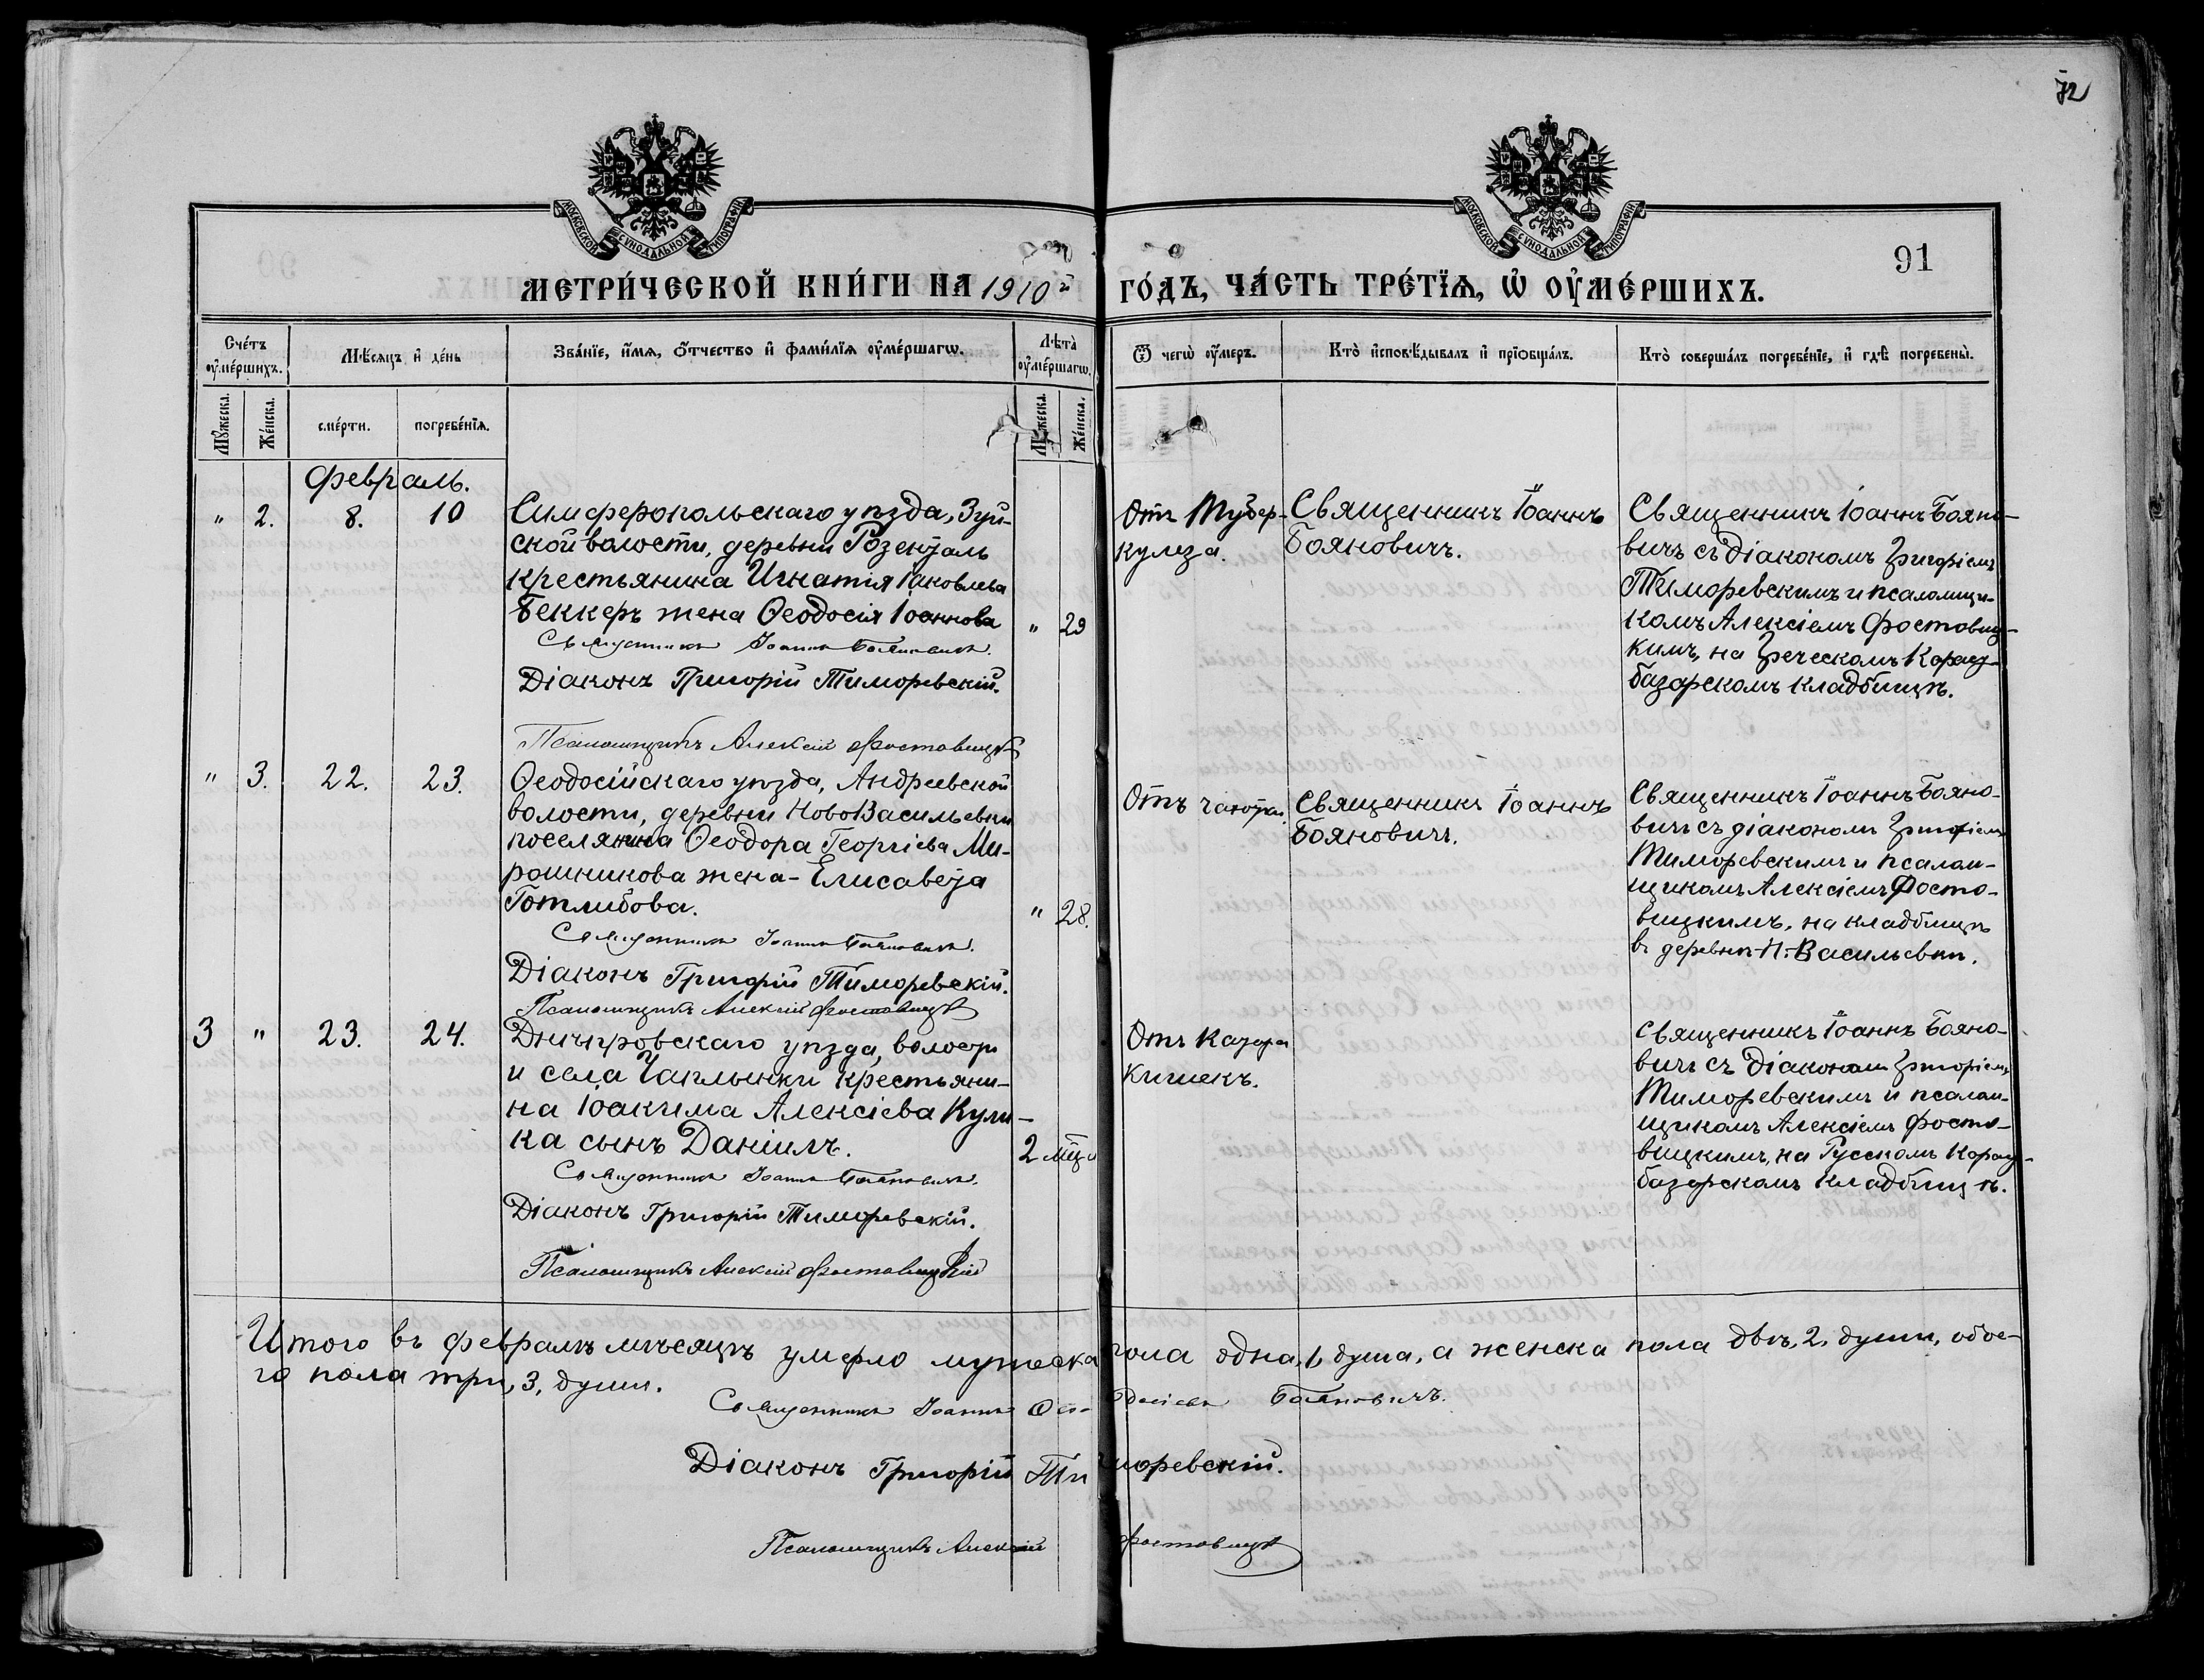 72
МОСКОВСКОЙ СѴНОДАЛЬНОЙ ТИПОГРАФІИ
МОСКОВСКОЙ СѴНОДАЛЬНОЙ ТИПОГРАФІИ
91
МЕТРИ́ЧЕСКОЙ КНИ́ГИ НА 1910й ГО́ДЪ, ЧА́СТЬ ТРЕ́ТЇѦ, Ѡ҆ ОУ҆МЕ́РШИХЪ.
Сче́тъ оу҆ме́ршихъ.
Мѣ́сяцъ и҆ де́нь
Зва́нїе, и҆́мѧ, ѻ҆́тчество и҆ фами́лїѧ оу҆ме́ршагѡ.
Лѣ́та оу҆ме́ршагѡ.
Ѿ чегѡ̀ оу҆́меръ.
Кто̀ и҆сповѣ́дывалъ и҆ прїѻбща́лъ.
Кто̀ соверша́лъ погребе́нїе, и҆ гдѣ̀ погребены̀.
Му́жеска.
Же́нска.
сме́рти.
погребе́нїѧ.
Му́жеска.
Же́нска.
Февраль.
" 2. 8. 10
Симферопольскаго уѣзда, Зуй-
ской волости, деревни Розенталь
крестьянина Игнатія Іаковлева
Беккеръ жена Ѳеодосія Іоаннова
" 29
Священникъ Іоаннъ Бояновичъ.
Діаконъ Григорій Тиморевскій.
Псаломщикъ Алексій Фостовицкій
Отъ Тубер-
кулеза.
Священникъ Іоаннъ
Бояновичъ.
Священникъ Іоаннъ Бояно-
вичъ съ діакономъ Григоріемъ
Тиморевскимъ и псаломщи-
комъ Алексіемъ Фостовиц-
кимъ, на Греческомъ Карасу-
базарскомъ кладбищѣ.
" 3. 22. 23.
Ѳеодосійскаго уѣзда, Андреевской
волости, деревни НовоВасильевки
поселянина Ѳеодора Георгіева Ми-
рошникова жена - Елисавета
Готлибова.
" 28.
Священникъ Іоаннъ Бояновичъ.
Діаконъ Григорій Тиморевскій.
Псаломщикъ Алексій Фостовицкій
Отъ чахотки.
Священникъ Іоаннъ
Бояновичъ.
Священникъ Іоаннъ Бояно-
вичъ съ діакономъ Григоріемъ
Тиморевскимъ и псалом-
щикомъ Алексіемъ Фосто-
вицкимъ, на кладбищѣ
въ деревнѣ Н.-Васильевки.
3 " 23. 24.
Днѣпровскаго уѣзда, волости
и села Чаплынки крестьяни-
на Іоакима Алексіева Кули-
ка сынъ Даніилъ.
2 мѣц.
Священникъ Іоаннъ Бояновичъ.
Діаконъ Григорій Тиморевскій.
Псаломщикъ Алексій Фостовицкій
Отъ Катара
Кишекъ.
Священникъ Іоаннъ Бояно-
вичъ съ Діакономъ Григоріемъ
Тиморевскимъ и псалом-
щикомъ Алексіемъ Фосто-
вицкимъ, на Русскомъ Карасу-
базарскомъ кладбищѣ.
Итого въ февралѣ мѣсяцѣ умерло мужеска пола одна, 1, душа, а женска пола двѣ, 2, души, обое-
го пола три, 3, души.
Священникъ Іоаннъ Ѳеодосіевъ Бояновичъ.
Діаконъ Григорій Тиморевскій.
Псаломщикъ Алексій Фостовицкій